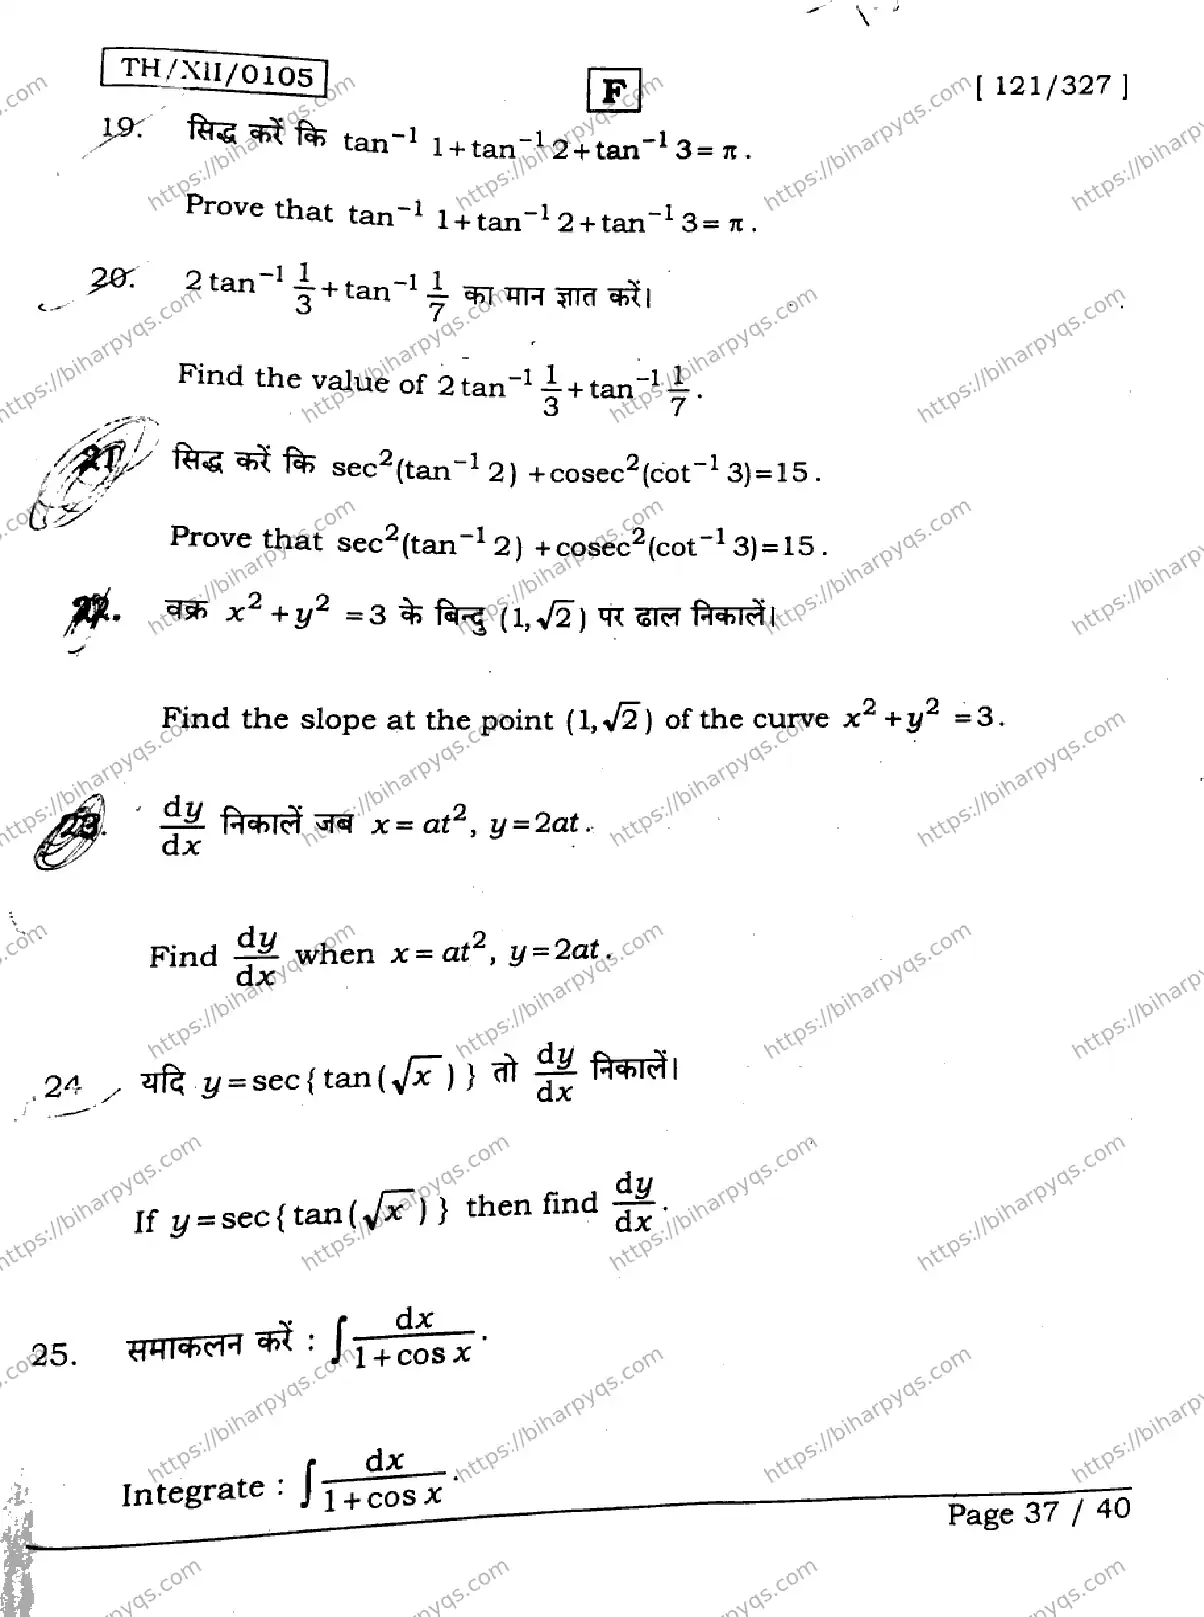 TH/XII/0105 F [ 121/327 ]
19. सिद्ध करें कि tan⁻¹ 1+tan⁻¹ 2+tan⁻¹ 3= π .
Prove that tan⁻¹ 1+tan⁻¹ 2+tan⁻¹ 3= π .
20. 2 tan⁻¹ 1/3 + tan⁻¹ 1/7 का मान ज्ञात करें।
Find the value of 2 tan⁻¹ 1/3 + tan⁻¹ 1/7 .
21 सिद्ध करें कि sec²(tan⁻¹ 2) +cosec²(cot⁻¹ 3)=15 .
Prove that sec²(tan⁻¹ 2) +cosec²(cot⁻¹ 3)=15 .
22. वक्र x² + y² = 3 के बिन्दु (1, √2) पर ढाल निकालें।
Find the slope at the point (1, √2) of the curve x² + y² = 3.
23. dy/dx निकालें जब x = at², y = 2at .
Find dy/dx when x = at², y = 2at .
24 यदि y = sec{ tan (√x ) } तो dy/dx निकालें।
If y = sec{ tan (√x ) } then find dy/dx .
25. समाकलन करें : ∫ dx/(1 + cos x) .
Integrate : ∫ dx/(1 + cos x) .
Page 37 / 40
https://biharpyqs.com